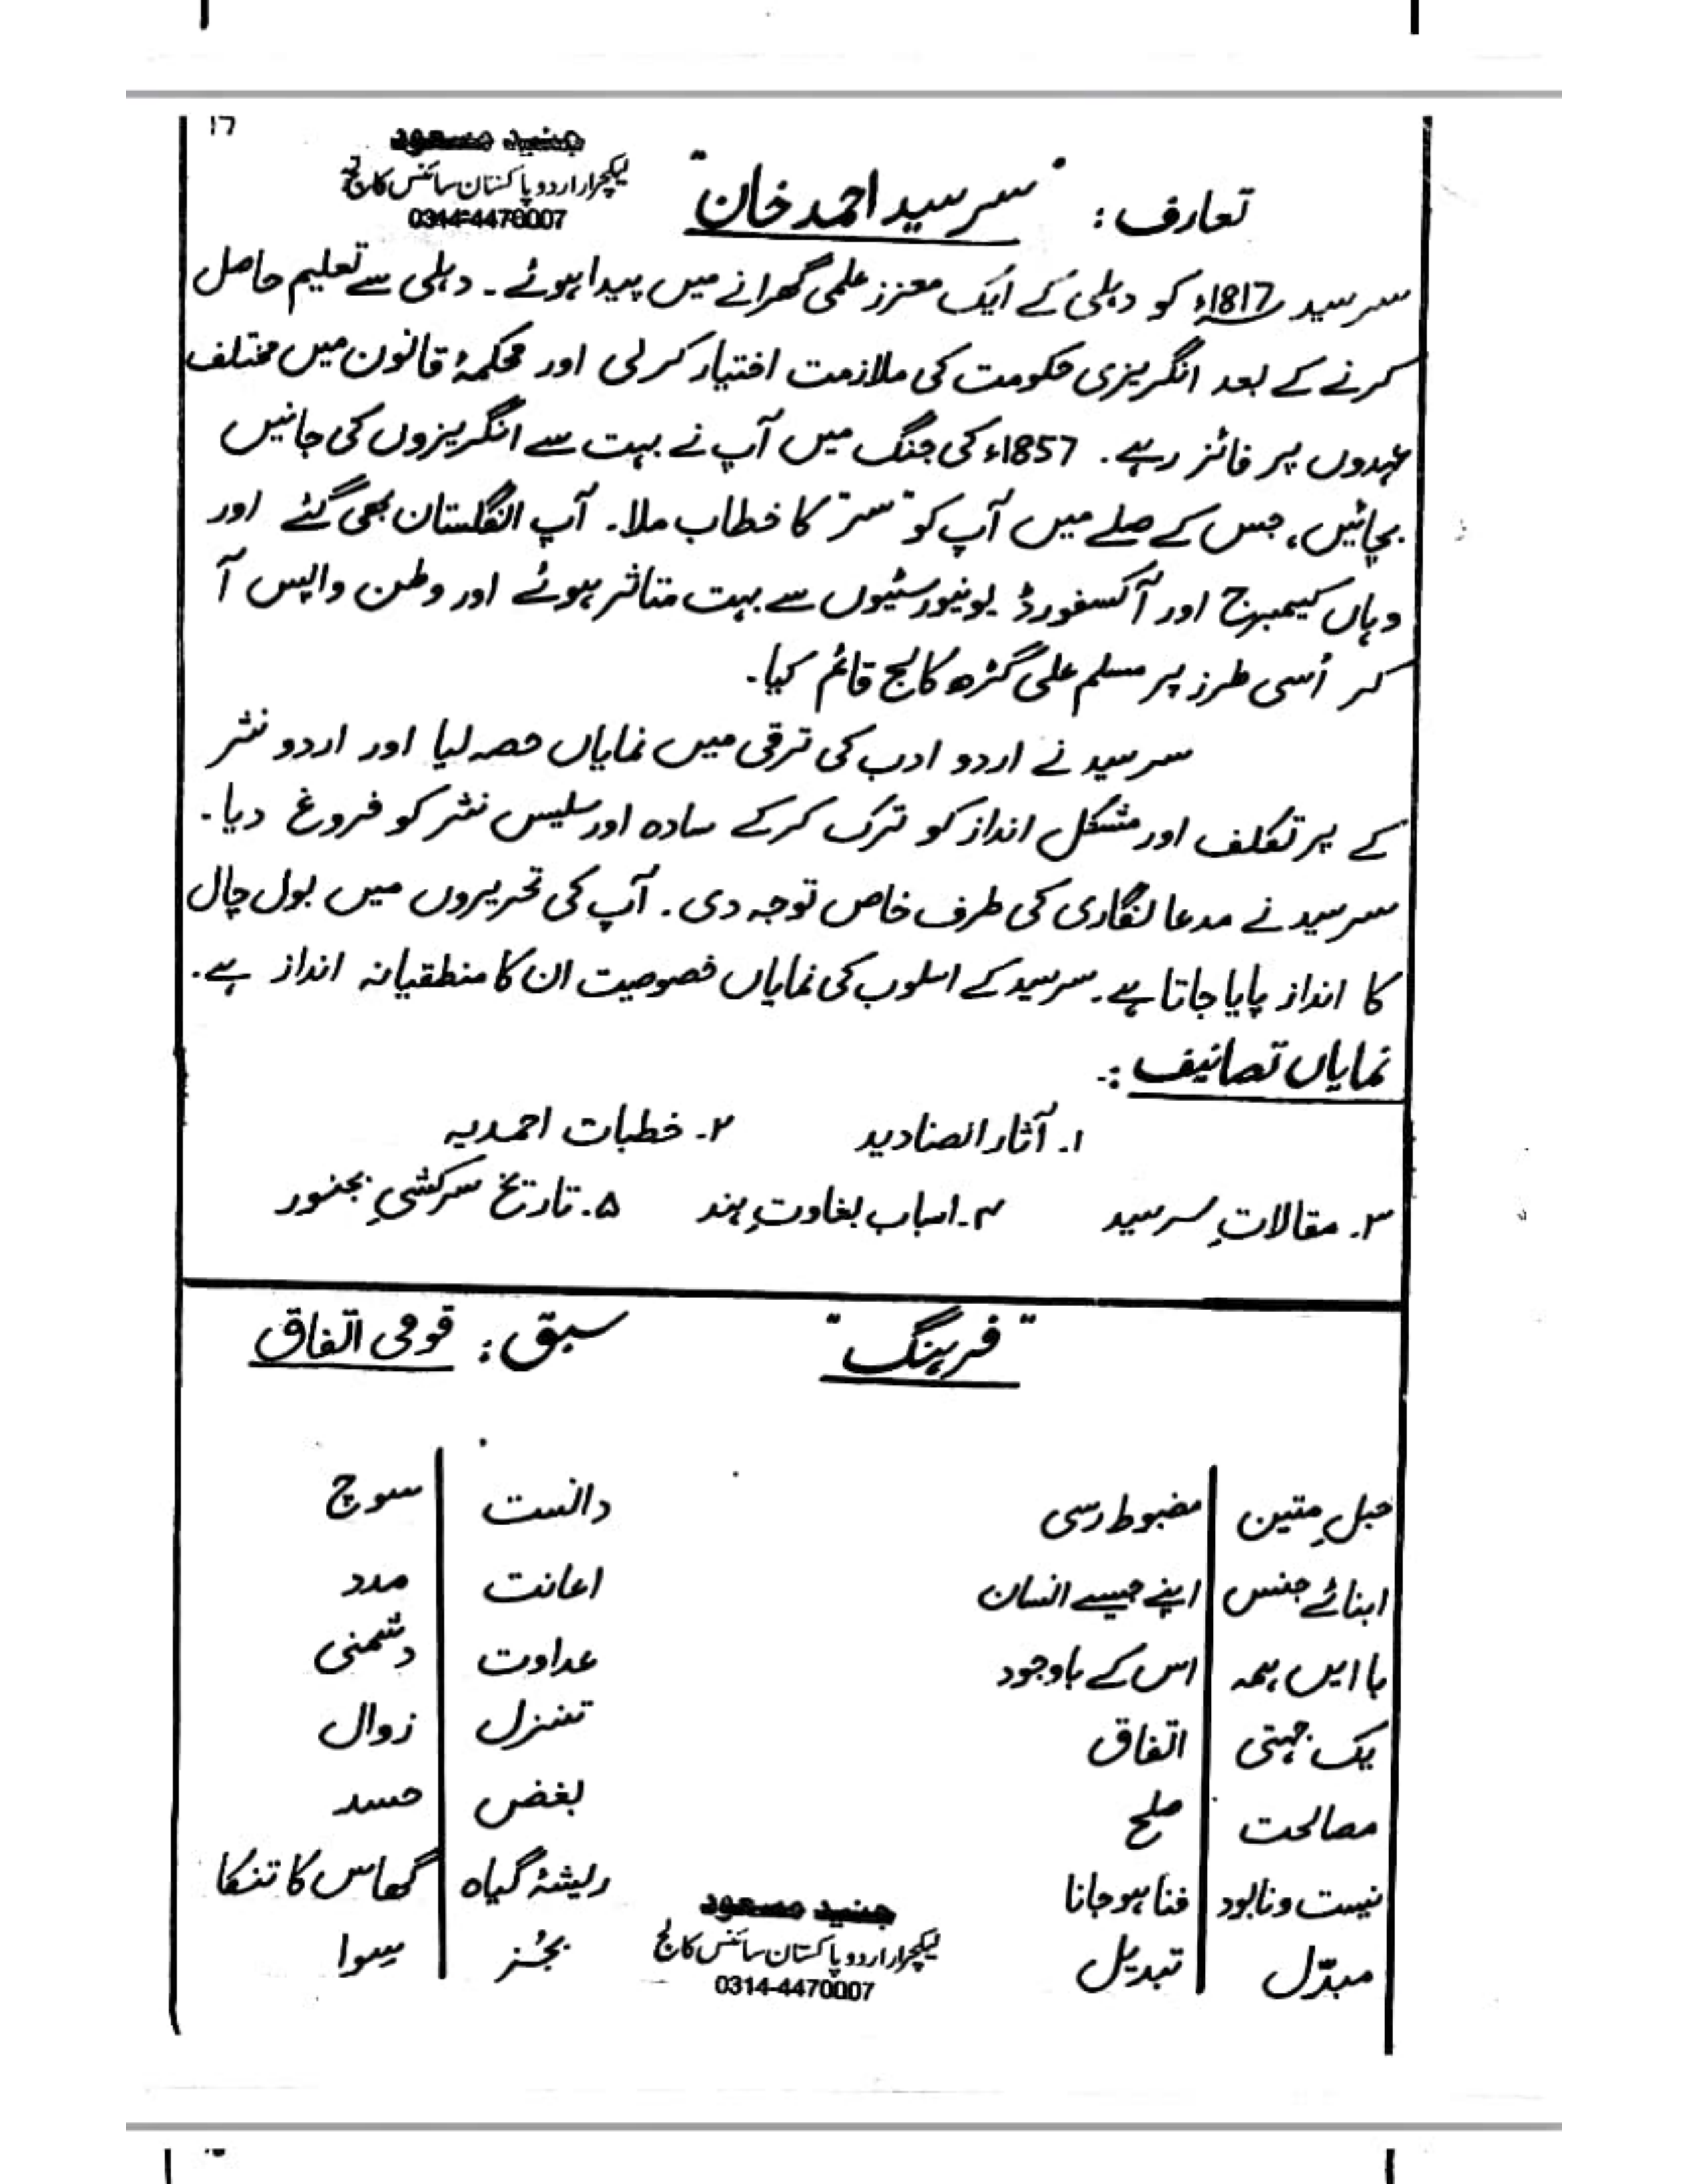 ۱۶
جنید مسعود
لیکچرار اردو پاکستان سائنس کالج
0314-4470007
تعارف : "سرسید احمد خان"
سرسید 1817ء کو دہلی کے ایک معزز علمی گھرانے میں پیدا ہوئے۔ دہلی سے تعلیم حاصل
کرنے کے بعد انگریزی حکومت کی ملازمت اختیار کر لی اور محکمۂ قانون میں مختلف
عہدوں پر فائز رہے۔ 1857ء کی جنگ میں آپ نے بہت سے انگریزوں کی جانیں
بچائیں، جس کے صلے میں آپ کو "سر" کا خطاب ملا۔ آپ انگلستان بھی گئے اور
وہاں کیمبرج اور آکسفورڈ یونیورسٹیوں سے بہت متاثر ہوئے اور وطن واپس آ
کر اُسی طرز پر مسلم علی گڑھ کالج قائم کیا۔
سرسید نے اردو ادب کی ترقی میں نمایاں حصہ لیا اور اردو نثر
کے پر تکلف اور مشکل انداز کو ترک کرکے سادہ اور سلیس نثر کو فروغ دیا۔
سرسید نے مدعا نگاری کی طرف خاص توجہ دی۔ آپ کی تحریروں میں بول چال
کا انداز پایا جاتا ہے۔ سرسید کے اسلوب کی نمایاں خصوصیت ان کا منطقیانہ انداز ہے۔
نمایاں تصانیف :-
۱۔ آثار الصنادید ۲۔ خطبات احمدیہ
۳۔ مقالاتِ سرسید ۴۔ اسباب بغاوتِ ہند ۵۔ تاریخ سرکشیِ بجنور
"فرہنگ" سبق : قومی اتفاق
حبلِ متین مضبوط رسی دانست سوچ
ابنائے جنس اپنے جیسے انسان اعانت مدد
با ایں ہمہ اس کے باوجود عداوت دشمنی
یک جہتی اتفاق تنزل زوال
مصالحت صلح بغض حسد
نیست و نابود فنا ہو جانا ریشۂ گیاہ گھاس کا تنکا
مبدّل تبدیل بجُز سوا
جنید مسعود
لیکچرار اردو پاکستان سائنس کالج
0314-4470007